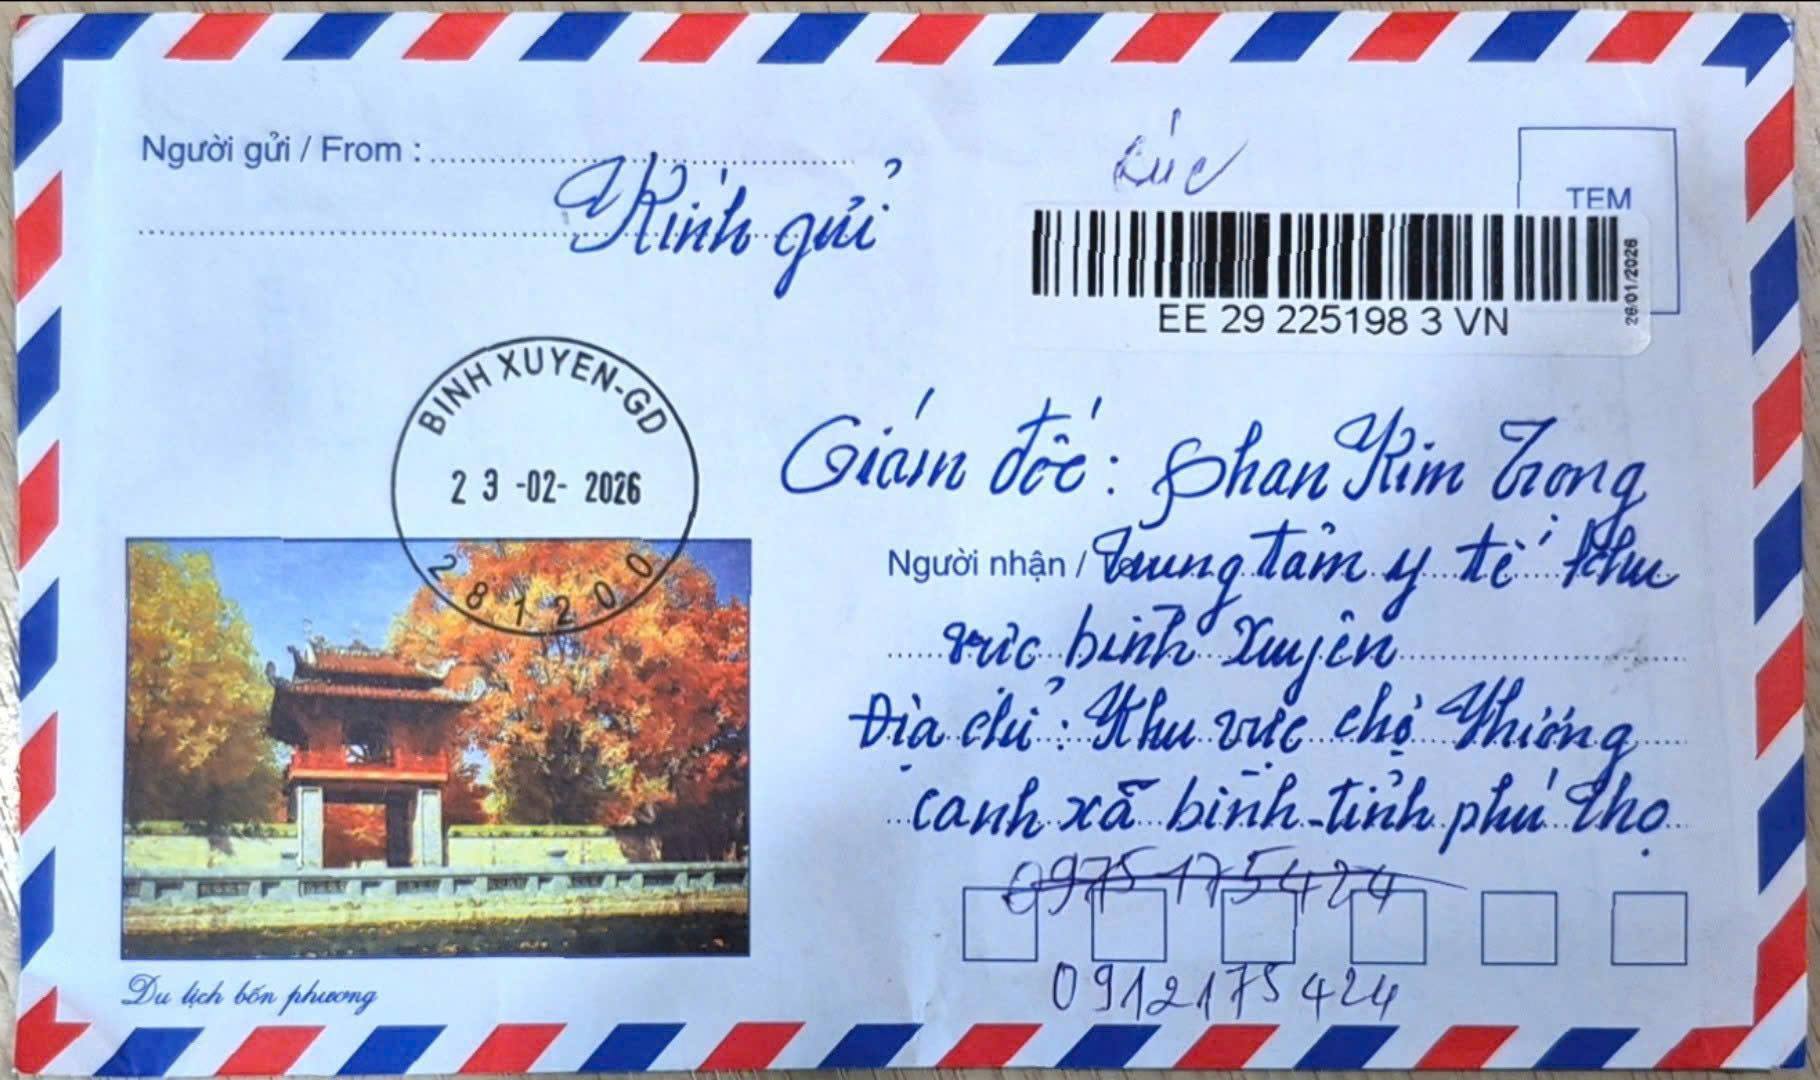 Người gửi / From :
Kính gửi
TEM
EE 29 225198 3 VN
26/01/2026
BINH XUYEN-GD
23-02-2026
281200
Giám đốc: Phan Kim Trọng
Người nhận / Trung tâm y tế khu
vực bình Xuyên
Địa chỉ: Khu vực chợ Hương
canh xã bình - tỉnh phú thọ
0975175424
0912175424
Du lịch bốn phương